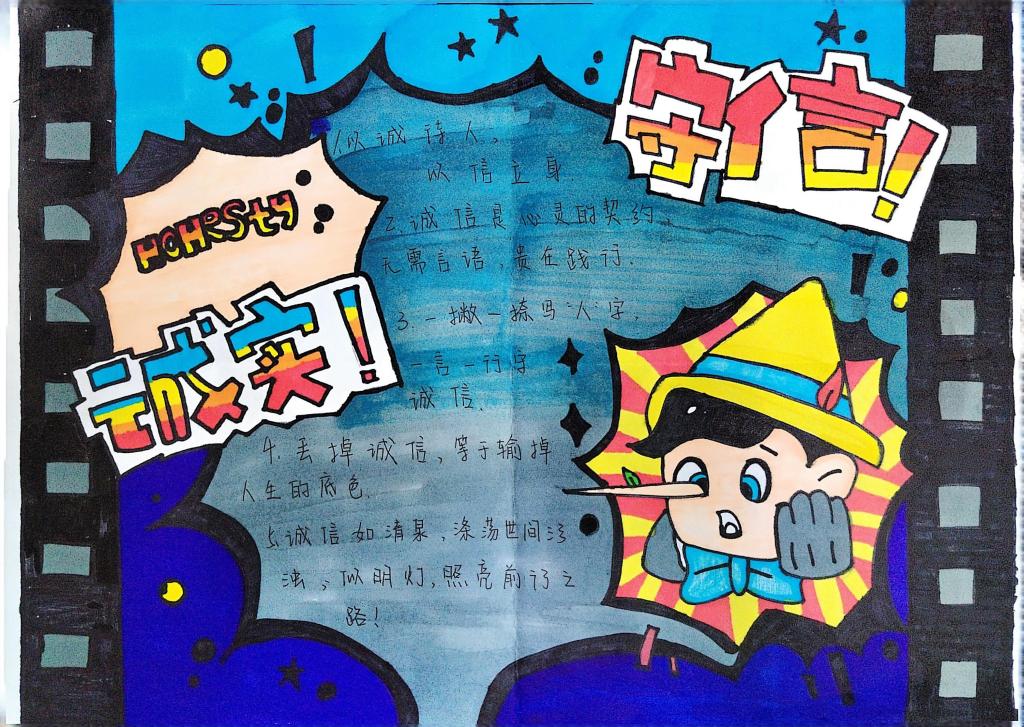 守信!
HOHRSty
诚实!
1.以诚待人,
以信立身.
2.诚信是心灵的契约、
无需言语,贵在践行.
3.一撇一捺写“人”字,
一言一行守
诚信.
4.丢掉诚信,等于输掉
人生的底色.
5.诚信如清泉,涤荡世间污
浊;似明灯,照亮前行之
路!